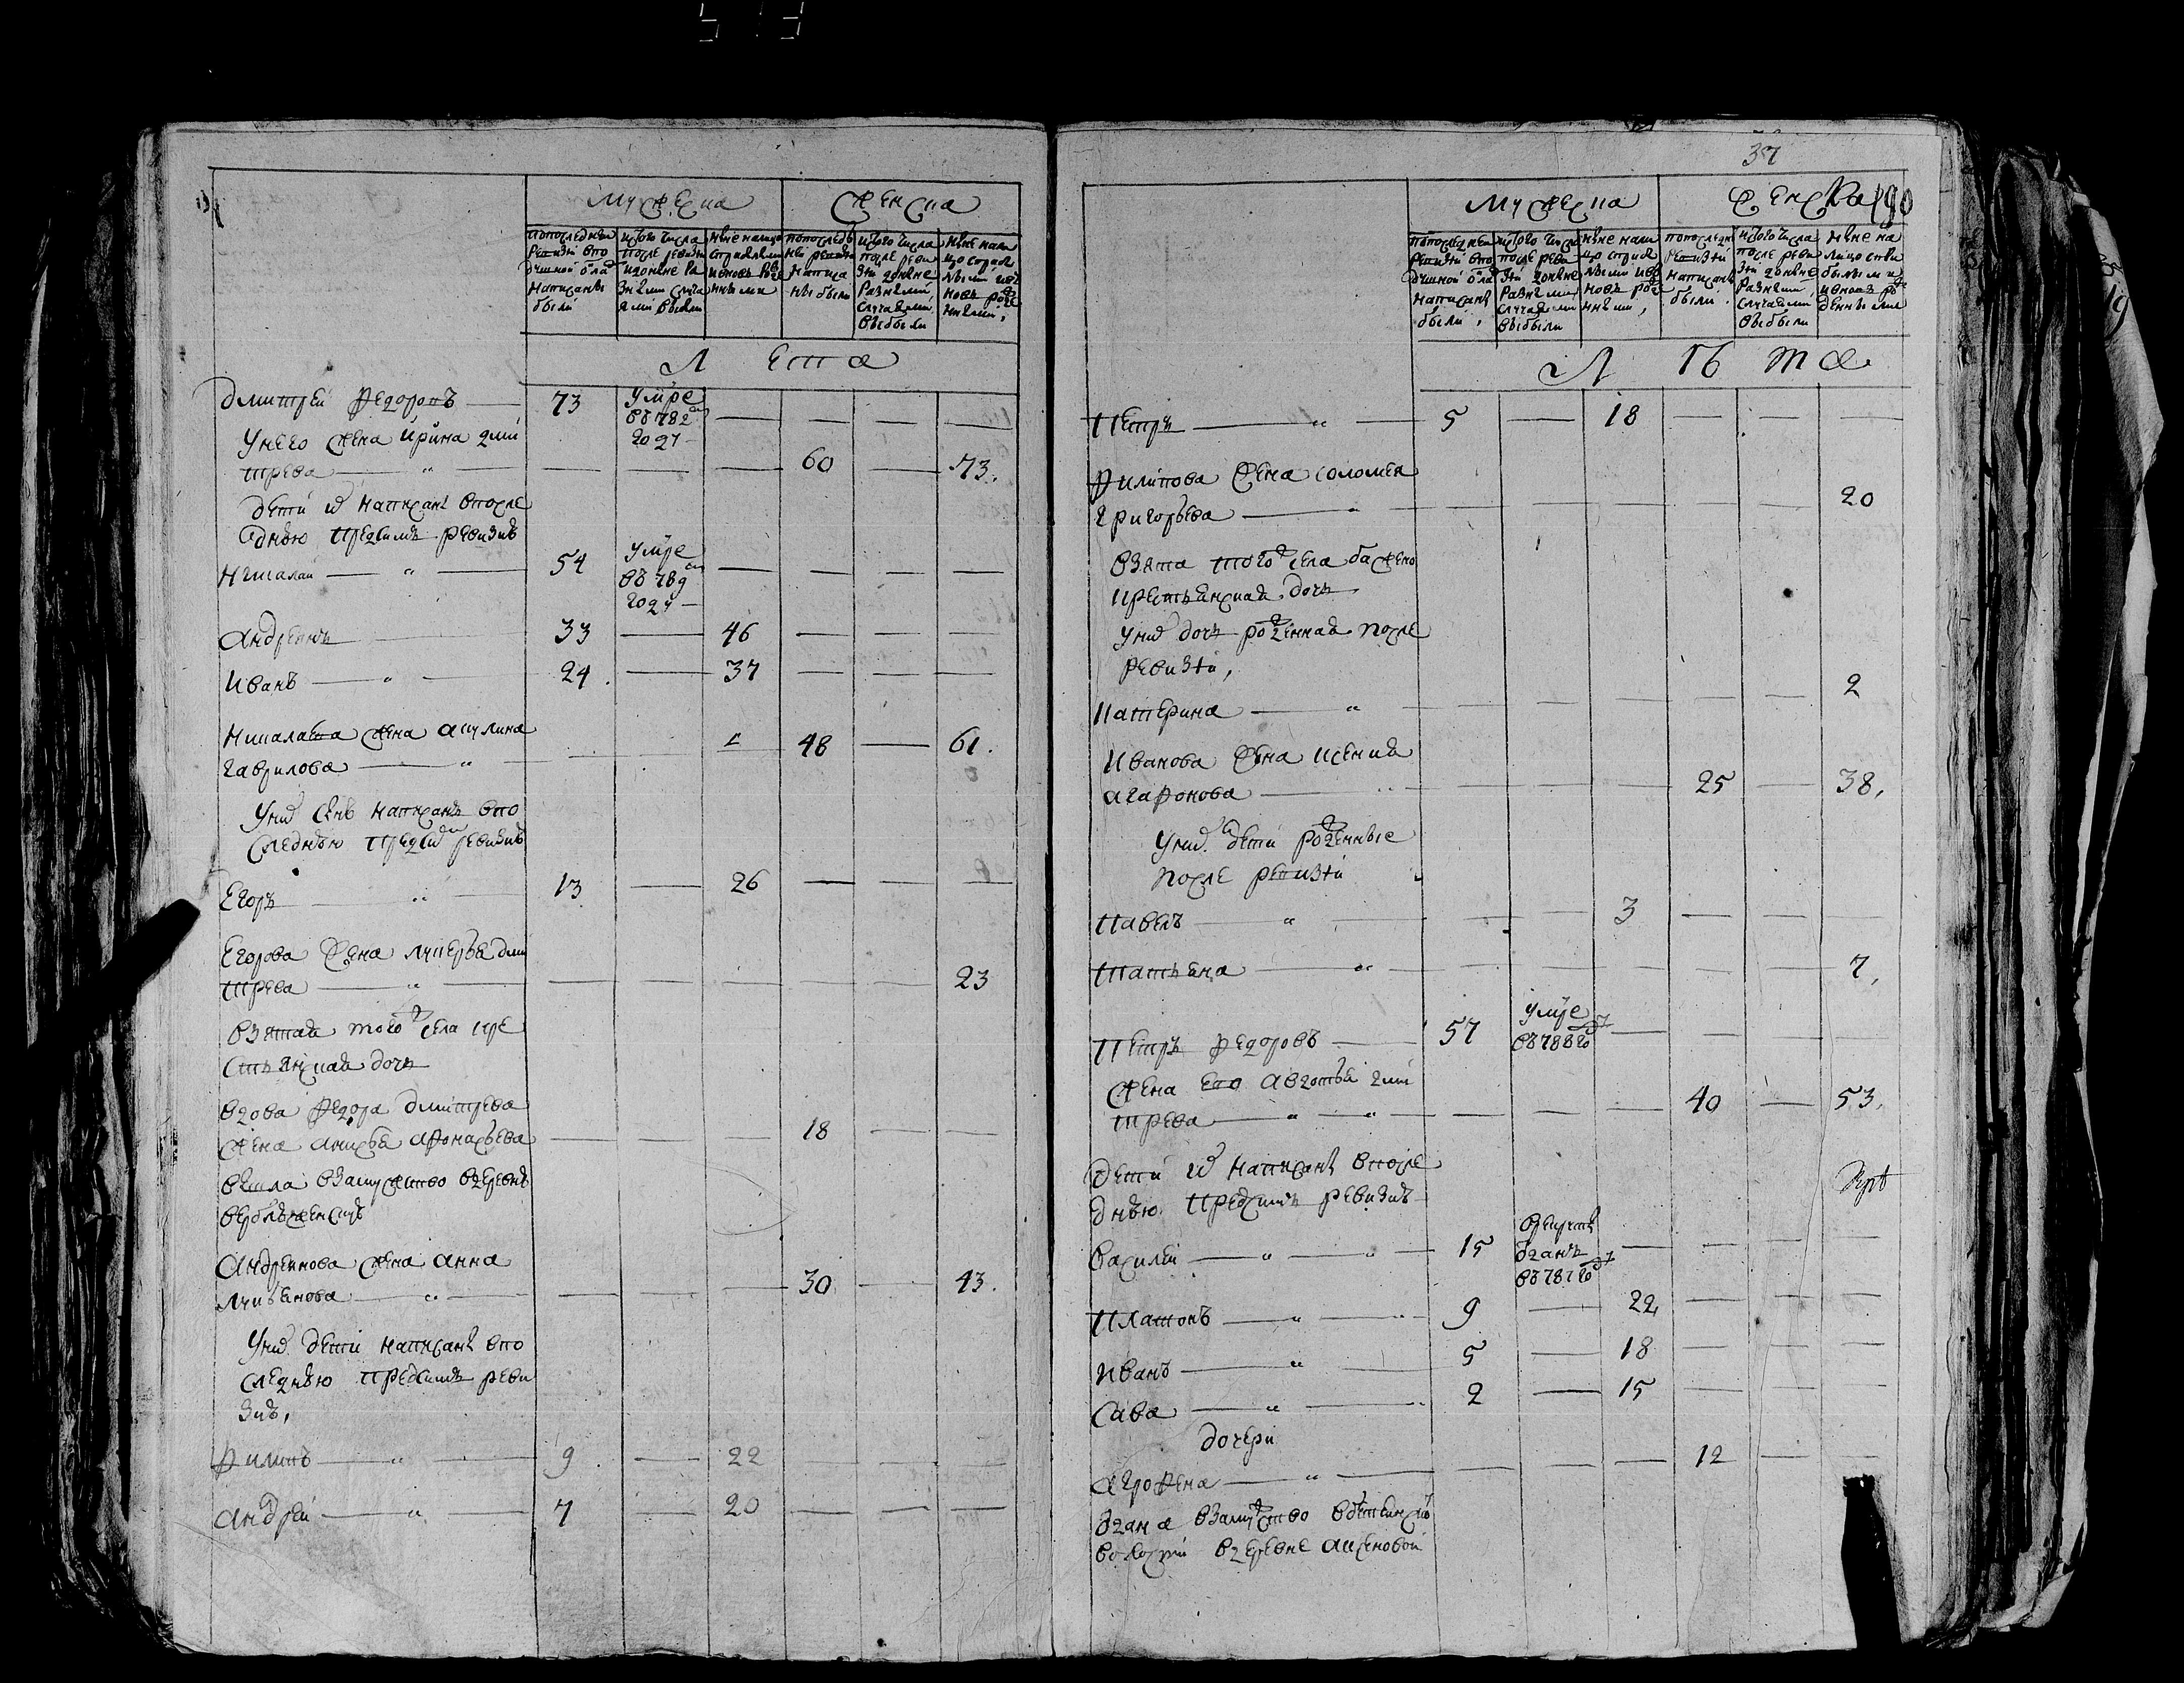 Мужеска Женска
попоследнеи ревизїи вподушной окладъ написаны были
исого числа после ревизїи идоныне разными случаями выбыли
ныне налицо состарелыми и вновь рожденными
попоследней ревизїи написаны были
исого числа после ревизїи доныне разными случаями выбыли
ныне налицо состарелыми и вновь рожденными
Лета
Дмитреи Федоровъ — 73 умре
въ 782м
году — — — —
Унего жена Ирина дми
трева — „ — — — 60 — 73.
Дети их написаны впосле
днѣю предсимъ ревизиѣ
Николай — „ — 54 умре
въ 789м
году — — — — —
Андреянъ — 33 — 46 — — —
Иванъ — „ — 24. — 37 — — —
Николаева жена акулина
гаврилова — „ — — — 48 — 61.
Уних сынъ написанъ впо
следнѣю предсим ревизиѣ
Егоръ „ 13 — 26 — — —
Егорова жена лукерья дми
трева — „ — — — — — — 23
взятая того ж села кре
стьянская дочь
вдова Федора дмитрева
жена анисья афонасьева — — — 18 — —
вышла взамужство вдеревню
Андреянова жена анна
лукьянова — „ — — — — 30 — 43.
Уних дети написаны впо
следнѣю предсимъ реви
зиѣ,
Филипъ — „ — 9 — 22 — — —
Андрей — „ — 7 — 20 — — —
37
Мужеска Женска 190
попоследнеи ревизїи вподушной окладъ написаны были,
исого числа после ревизїи доныне разными случаями выбыли
ныне налицо состарелыми и вновь рожденными,
попоследней ревизїи написаны были.
исого числа после ревизїи доныне разными случаями выбыли
ныне налицо
Лѣта
Петръ — „ — 5 — 18 — — —
Филипова жена соломея
григорьева — „ — — — — — — 20
взята того ж села бажено
крестьянская дочь
Уних дочь рожденная после
ревизїи,
Катерина — „ — — — — — — 2
Иванова жена ксения
агафонова — — — — 25 — 38,
Уних дети рожденные
после ревизїи
Павелъ — „ — — — 3 — — —
Татьяна — „ — — — — — — 7,
Петръ федоровъ — 57 умре
въ 788 год — — — —
Жена ево авдотья дми
трева — „ — „ — — — — 40 — 53,
Дети их написаны впосле
днѣю предсимъ ревизиѣ
василеи — „ — „ — 15 врекруты
отданъ
въ 787 год — — — —
Платонъ — „ — „ 9 — 22, — — —
Иванъ — „ — 5 — 18 — — —
Сава — „ — 2 — 15 — — —
дочери
агрофена — „ — — — — 12 — —
вдана взамужство
волости вдеревне аксеновой